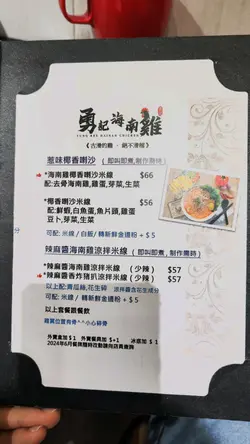 勇記海南雞
YUNG KEE HAINAN CHICKEN
《古滑的雞 · 絕不滑腔》
惹味椰香喇沙 (即叫即煮,制作需時)
*海南雞椰香喇沙米線 $66
配:去骨海南雞,雞蛋,芽菜,生菜
*椰香喇沙米線 $56
配:鮮蝦,白魚蛋,魚片頭,雞蛋
豆卜,芽菜,生菜
可配: 米線 / 白飯 / 轉新鮮金邊粉 + $ 5
辣麻醬海南雞涼拌米線 (即叫即煮,制作需時)
*辣麻醬海南雞涼拌米線 (少辣) $57
*辣麻醬香炸豬扒涼拌米線 (少辣) $57
以上配:青瓜絲,花生碎 涼拌醬含花生成分
可配: 米線 / 轉新鮮金邊粉 + $ 5
以上套餐跟餐飲
雞翼位置有骨^^小心碎骨
外賣盒加 $ 1 外賣餐具加 $+1 凍飲加 $ 3
2024年6月餐牌隨時改動請向店員查詢
分